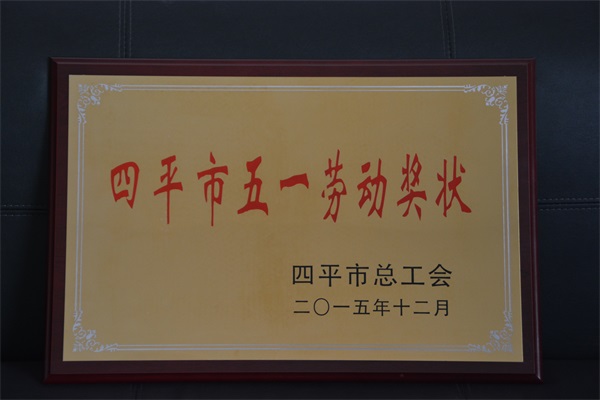 四平市五一劳动奖状
四平市总工会
二〇一五年十二月